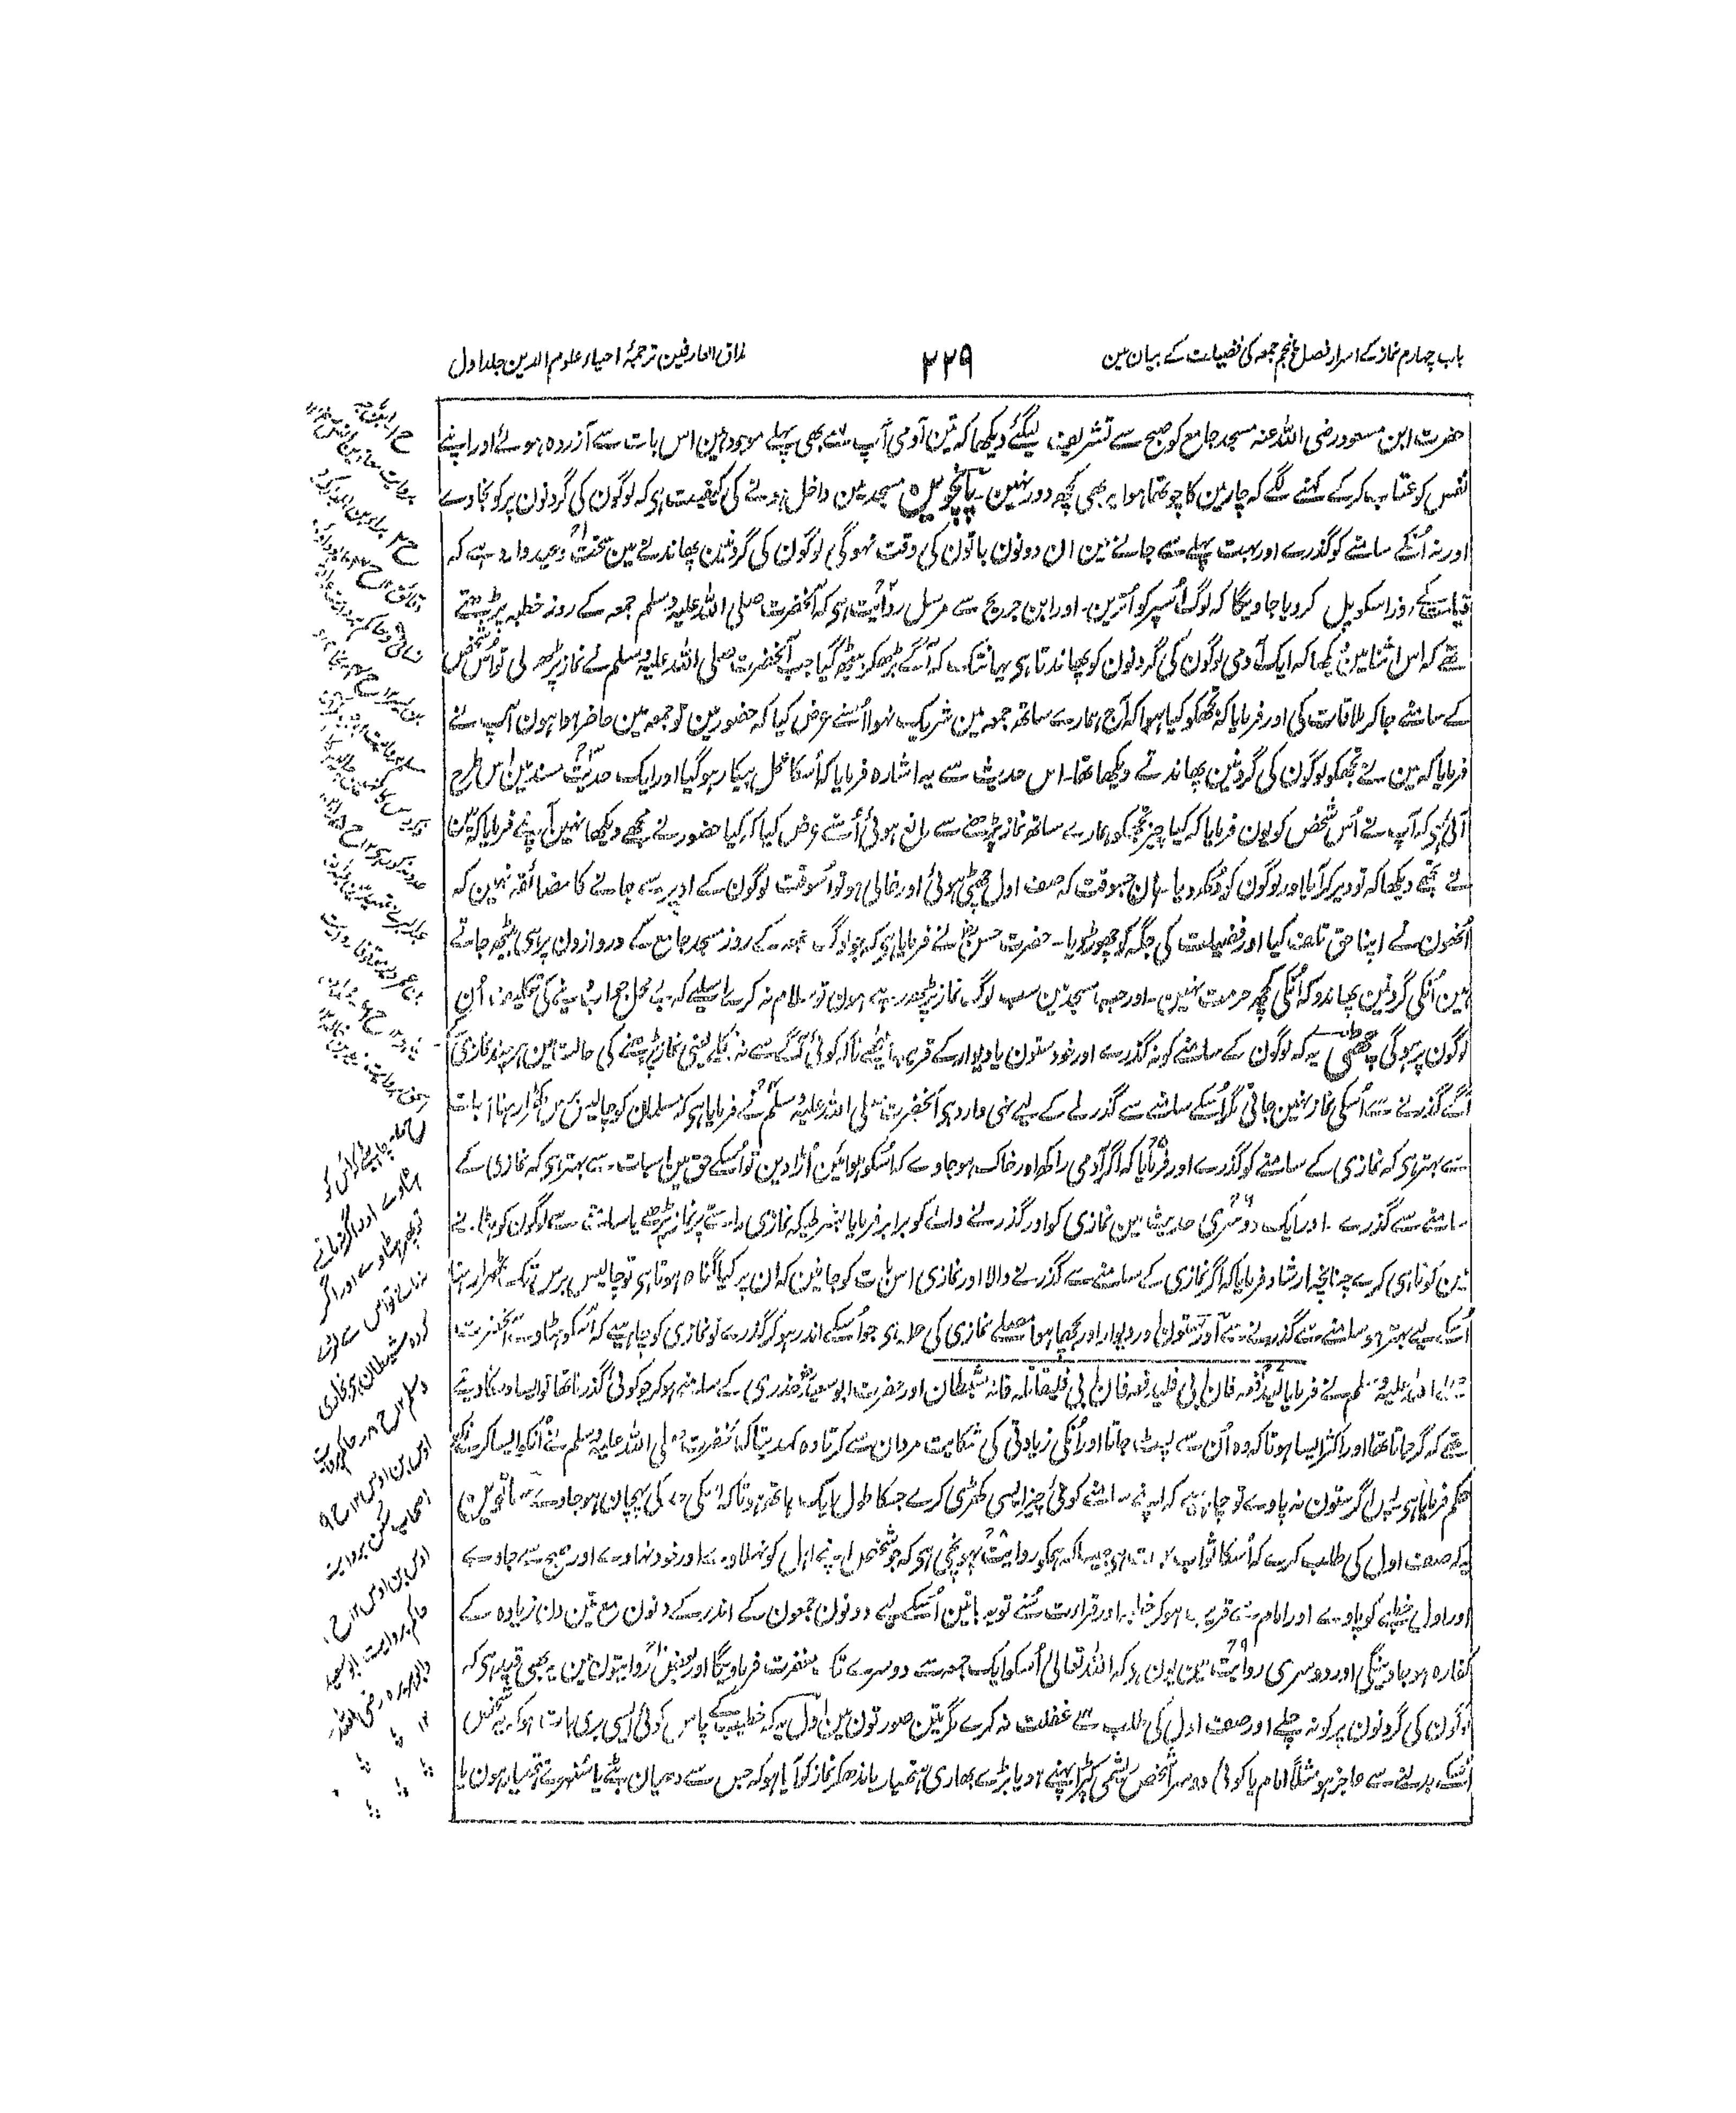 باب چہارم نماز کے اسرار فصل پنجم جمعہ کی فضیلت کے بیان مین
۲۲۹
مذاق العارفین ترجمۂ احیاء علوم الدین جلد اول
حضرت ابن مسعود رضی اللہ عنہ مسجد جامع کو صبح سے تشریف لیگئے دیکھا کہ تین آدمی آپ سے بھی پہلے موجود ہین اس بات سے آزردہ ہوئے اور اپنے
نفس کو عتاب کرکے کہنے لگے کہ چار مین کا چوتھا ہوا یہ بھی کچھ دور نہین۔ پانچوین مسجد مین داخل ہونے کی کیفیت ہی کہ لوگون کی گردنون پر کو نجاوے
اور نہ اُنکے سامنے کو گذرے اور بہت پہلے سے جانے مین ان دونون باتون کی دقت نہوگی لوگون کی گردنین پھاندنے مین سخت وعید وارد ہے کہ
قیامت کے روز اسکو پل کر دیا جاویگا کہ لوگ اُسپر کو اُترین۔ اور ابن جریج سے مرسل روایت ہی کہ آنحضرت صلی اللہ علیہ وسلم جمعہ کے روز خطبہ پڑھتے
تھے کہ اس اثنا مین دیکھا کہ ایک آدمی لوگون کی گردنون کو پھاندتا ہی یہانتک کہ آگے بڑھکر بیٹھ گیا جب آنحضرت صلی اللہ علیہ وسلم نے نماز پڑھ لی تو اُس شخص
کے سامنے جا کر ملاقات کی اور فرمایا کہ تجھکو کیا ہوا کہ آج ہمارے ساتھ جمعہ مین شریک نہوا اُسنے عرض کیا کہ حضور مین تو جمعہ مین حاضر ہوا ہون آپ نے
فرمایا کہ مین نے تجھکو لوگون کی گردنین پھاندتے دیکھا تھا۔ اس حدیث سے یہ اشارہ فرمایا کہ اُسکا عمل بیکار ہوگیا اور ایک حدیث مسند مین اس طرح
آئی ہی کہ آپ نے اُس شخص کو یون فرمایا کہ کیا چیز تجھکو ہمارے ساتھ نماز پڑھنے سے مانع ہوئی اُسنے عرض کیا کہ کیا حضور نے مجھے دیکھا نہین آپنے فرمایا کہ مین
نے تجھے دیکھا کہ تو دیر کر آیا اور لوگون کو دُکھ دیا۔ ہان جبوقت کہ صف اول چھٹی ہوئی اور خالی ہو تو اُسوقت لوگون کے اوپر سے جانے کا مضائقہ نہین کہ
اُنھون نے اپنا حق تلف کیا اور فضیلت کی جگہ کو چھوڑ دیا۔ حضرت حسن نے فرمایا ہی کہ جو لوگ جمعہ کے روز مسجد جامع کے دروازون پر ہی بیٹھ جاتے
ہین اُنکی گردنین پھاندو کہ اُنکی کچھ حرمت نہین۔ اور جب مسجد مین سب لوگ نماز پڑھ رہے ہون تو سلام نہ کرے اسلیے کہ بے محل جواب دینے کی تکلیف اُن
لوگون پر ہوگی چھٹی یہ کہ لوگون کے سامنے کو نہ گذرے اور خود ستون یا دیوار کے قریب بیٹھے تاکہ کوئی آگے سے نہ نکلے یعنی نماز پڑھنے کی حالت مین ہر چند نمازی کے
آگے گذرنے سے اُسکی نماز نہین جاتی مگر اُسکے سامنے سے گذرنے کے لیے نہی وارد ہی آنحضرت صلی اللہ علیہ وسلم نے فرمایا ہی کہ مسلمان کو چالیس برس کھڑا رہنا اس بات
سے بہتر ہی کہ نمازی کے سامنے کو گذرے اور فرمایا کہ اگر آدمی راکھ اور خاک ہو جاوے کہ اُسکو ہوائین اُڑا دین تو اُسکے حق مین اس بات سے بہتر ہی کہ نمازی کے
سامنے سے گذرے۔ اور ایک دوسری حدیث مین نمازی کو اور گذرنے والے کو برابر فرمایا بشرطیکہ نمازی راستے پر نماز پڑھے یا سامنے سے لوگون کو ہٹانے
مین کوتاہی کرے چنانچہ ارشاد فرمایا کہ اگر نمازی کے سامنے سے گذرنے والا اور نمازی اس بات کو جانین کہ ان پر کیا گناہ ہوتا ہی تو چالیس برس تک ٹھہرا رہنا
اُسکے لیے بہتر ہو سامنے سے گذرنے سے اور ستون اور دیوار اور بچھا ہوا مصلے نمازی کی حد ہی جو اُسکے اندر ہو کر گذرے تو نمازی کو چاہیے کہ اُسکو ہٹاوے آنحضرت
صلی اللہ علیہ وسلم نے فرمایا لیدفعہ فان ابی فلیدفعہ فان ابی فلیقاتلہ فانہ شیطان اور حضرت ابو سعید خدری کے سامنے ہو کر جو کوئی گذرتا تھا تو ایسا دھکا دیتے
تھے کہ گر جاتا تھا اور اکثر ایسا ہوتا کہ وہ اُن سے لپٹ جاتا اور اُنکی زیادتی کی شکایت مروان سے کرتا وہ کہدیتا کہ آنحضرت صلی اللہ علیہ وسلم نے اُنکو ایسا کرنے کو
حکم فرمایا ہی پس اگر ستون نہ پاوے تو چاہیے کہ اپنے سامنے کوئی چیز ایسی کھڑی کرے جسکا طول ایک ہاتھ ہو تاکہ اُسکی حد کی پہچان ہو جاوے۔ ساتوین
یہ کہ صف اول کی طلب کرے کہ اُسکا ثواب بہت ہی جیسا کہ ہمکو روایت پہونچی ہی کہ جو شخص اپنے اہل کو نہلاوے اور خود نہاوے اور صبح سے جاوے
اور اول خطبہ کو پاوے اور امام سے قریب ہو کر خطبہ اور قراءت سُنے تو یہ باتین اُسکے لیے دونون جمعون کے اندر کے دنون مع تین دن زیادہ کے
کفارہ ہو جاوینگی اور دوسری روایت مین یون ہی کہ اللہ تعالی اُسکو ایک جمعہ سے دوسرے تک مغفرت فرماویگا اور بعض روایتون مین یہ بھی قید ہی کہ
لوگون کی گردنون پر کو نہ چلے اور صف اول کی طلب سے غفلت نہ کرے مگر تین صورتون مین اول یہ کہ خطیب کے پاس کوئی ایسی بری بات ہو کہ یہ شخص
اُسکے بدلنے سے عاجز ہو مثلاً امام یا کوئی دوسرا شخص ریشمی کپڑا پہنے ہو یا بڑے بھاری ہتھیار باندھکر نماز کو آیا ہو کہ جس سے دھیان بٹے یا سنہرے ہتھیار ہون یا
چاہیے کہ اُس کو
ہٹاوے اور اگر نہ مانے
تو پھر ہٹاوے اور اگر
نہ مانے تو اس سے لڑے
کہ وہ شیطان ہی بخاری
ومسلم ۱۲ ح ۸ حاکم بروایت
اوس بن اوس ۱۲ ح ۹
اصحاب سنن بروایت
اوس بن اوس ۱۲ ح ۱۰
حاکم بروایت ابو سعید
وابو ہریرہ رضی اللہ عنہ
۱۲